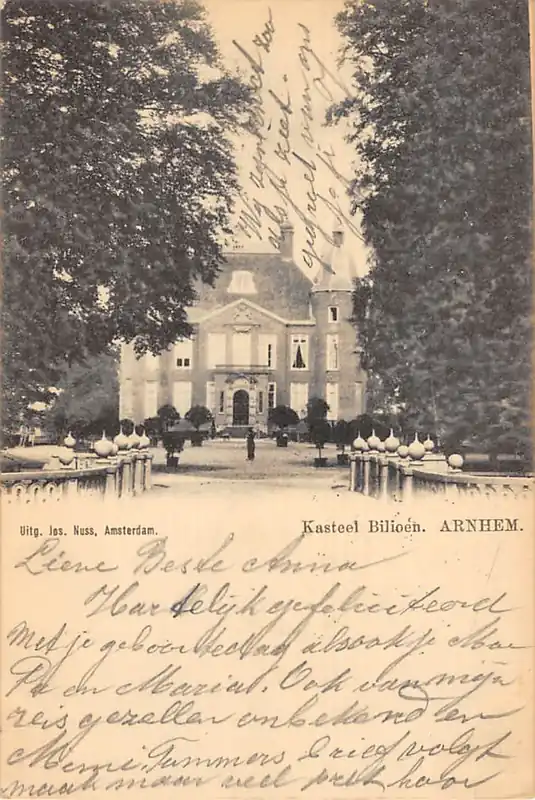 Uitg. Jos. Nuss, Amsterdam.
Kasteel Bilioen. ARNHEM.
Lieve Beste Anna
Hartelijk gefeliciteerd
Met je geboortedag alsook je Moe
Pa en Maria. Ook van mijn
reis gezellen onbekend en
Memi Tummers brief volgt
maak maar veel pret hoor
als je